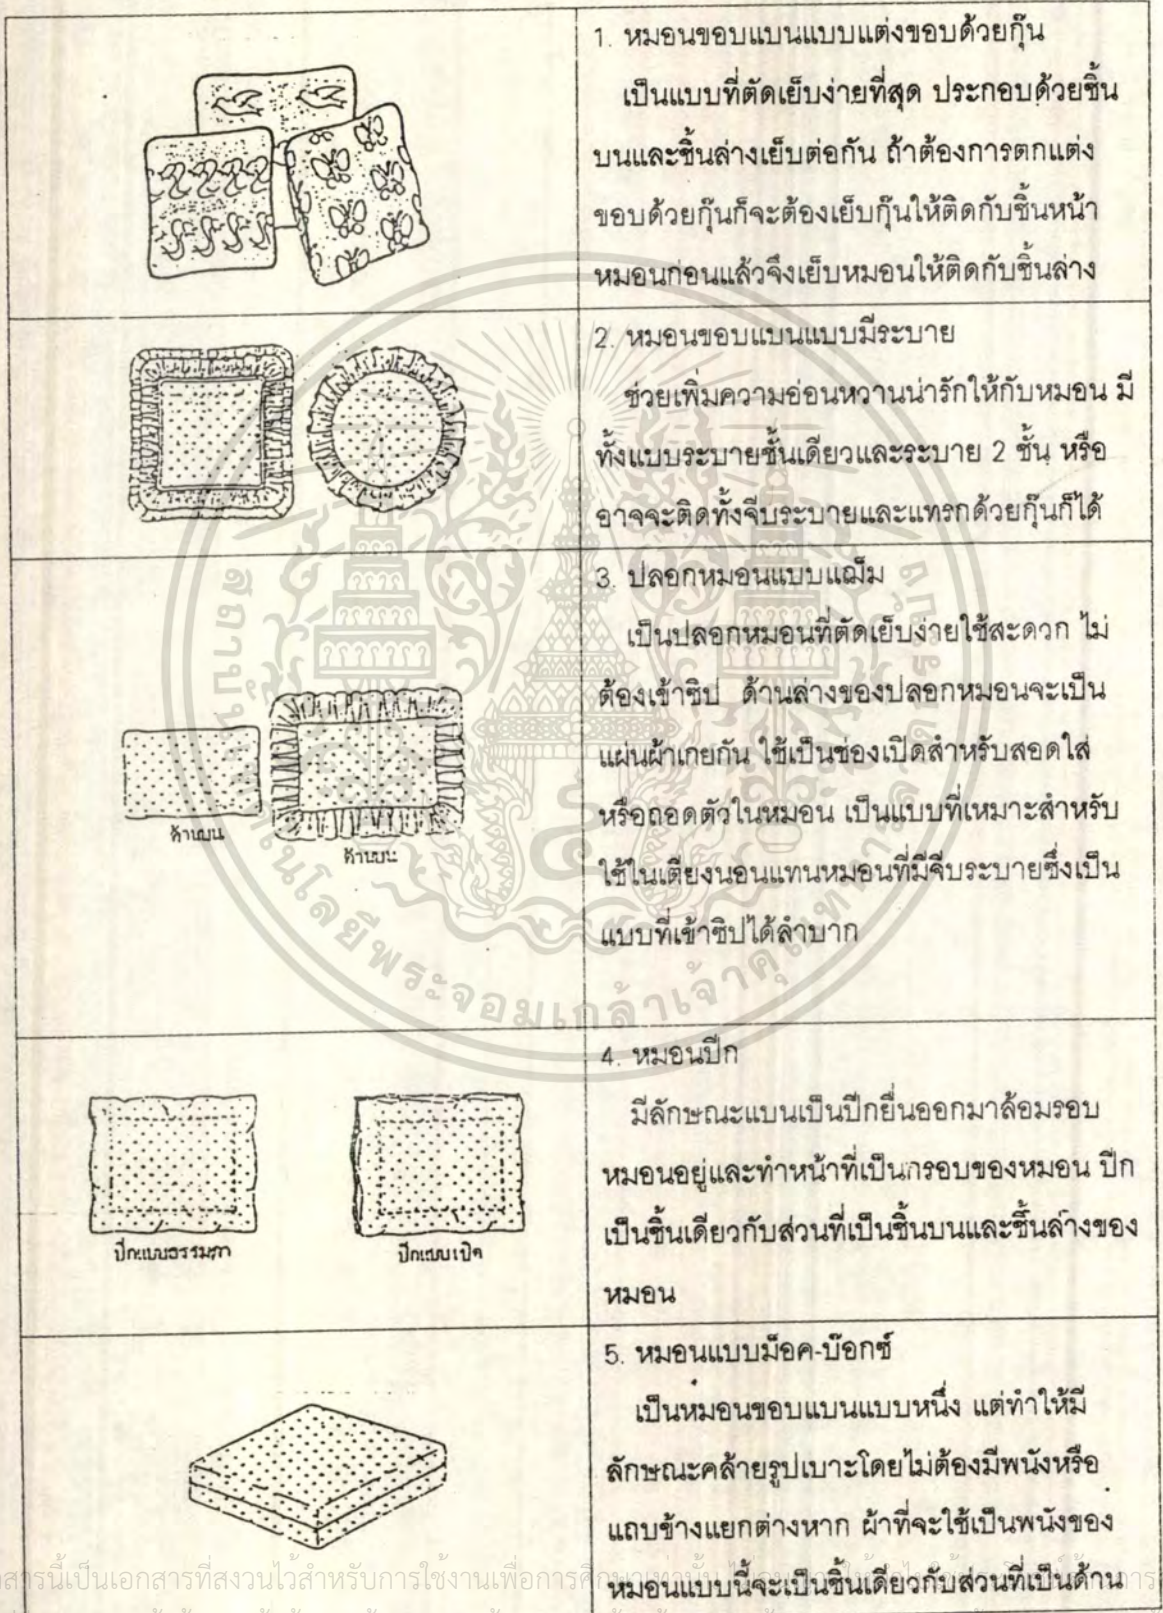 1. หมอนขอบแบนแบบแต่งขอบด้วยกุ๊น
เป็นแบบที่ตัดเย็บง่ายที่สุด ประกอบด้วยชิ้น
บนและชิ้นล่างเย็บต่อกัน ถ้าต้องการตกแต่ง
ขอบด้วยกุ๊นก็จะต้องเย็บกุ๊นให้ติดกับชิ้นหน้า
หมอนก่อนแล้วจึงเย็บหมอนให้ติดกับชิ้นล่าง
2. หมอนขอบแบนแบบมีระบาย
ช่วยเพิ่มความอ่อนหวานน่ารักให้กับหมอน มี
ทั้งแบบระบายชั้นเดียวและระบาย 2 ชั้น หรือ
อาจจะติดทั้งจีบระบายและแทรกด้วยกุ๊นก็ได้
ด้านบน
ด้านบน
3. ปลอกหมอนแบบแฌ็ม
เป็นปลอกหมอนที่ตัดเย็บง่ายใช้สะดวก ไม่
ต้องเข้าซิป ด้านล่างของปลอกหมอนจะเป็น
แผ่นผ้าเกยกัน ใช้เป็นช่องเปิดสำหรับสอดใส่
หรือถอดตัวในหมอน เป็นแบบที่เหมาะสำหรับ
ใช้ในเตียงนอนแทนหมอนที่มีจีบระบายซึ่งเป็น
แบบที่เข้าซิปได้ลำบาก
ปีกแบบธรรมดา
ปีกแบบเปิด
4. หมอนปีก
มีลักษณะแบนเป็นปีกยื่นออกมาล้อมรอบ
หมอนอยู่และทำหน้าที่เป็นกรอบของหมอน ปีก
เป็นชิ้นเดียวกับส่วนที่เป็นชิ้นบนและชิ้นล่างของ
หมอน
5. หมอนแบบม็อค-บ๊อกซ์
เป็นหมอนขอบแบนแบบหนึ่ง แต่ทำให้มี
ลักษณะคล้ายรูปเบาะโดยไม่ต้องมีพนังหรือ
แถบข้างแยกต่างหาก ผ้าที่จะใช้เป็นพนังของ
หมอนแบบนี้จะเป็นชิ้นเดียวกับส่วนที่เป็นด้าน
พระจอมเกล้าเจ้าคุณทหาร
สารนี้เป็นเอกสารที่สงวนไว้สำหรับการใช้งานเพื่อการศึกษาเท่านั้น